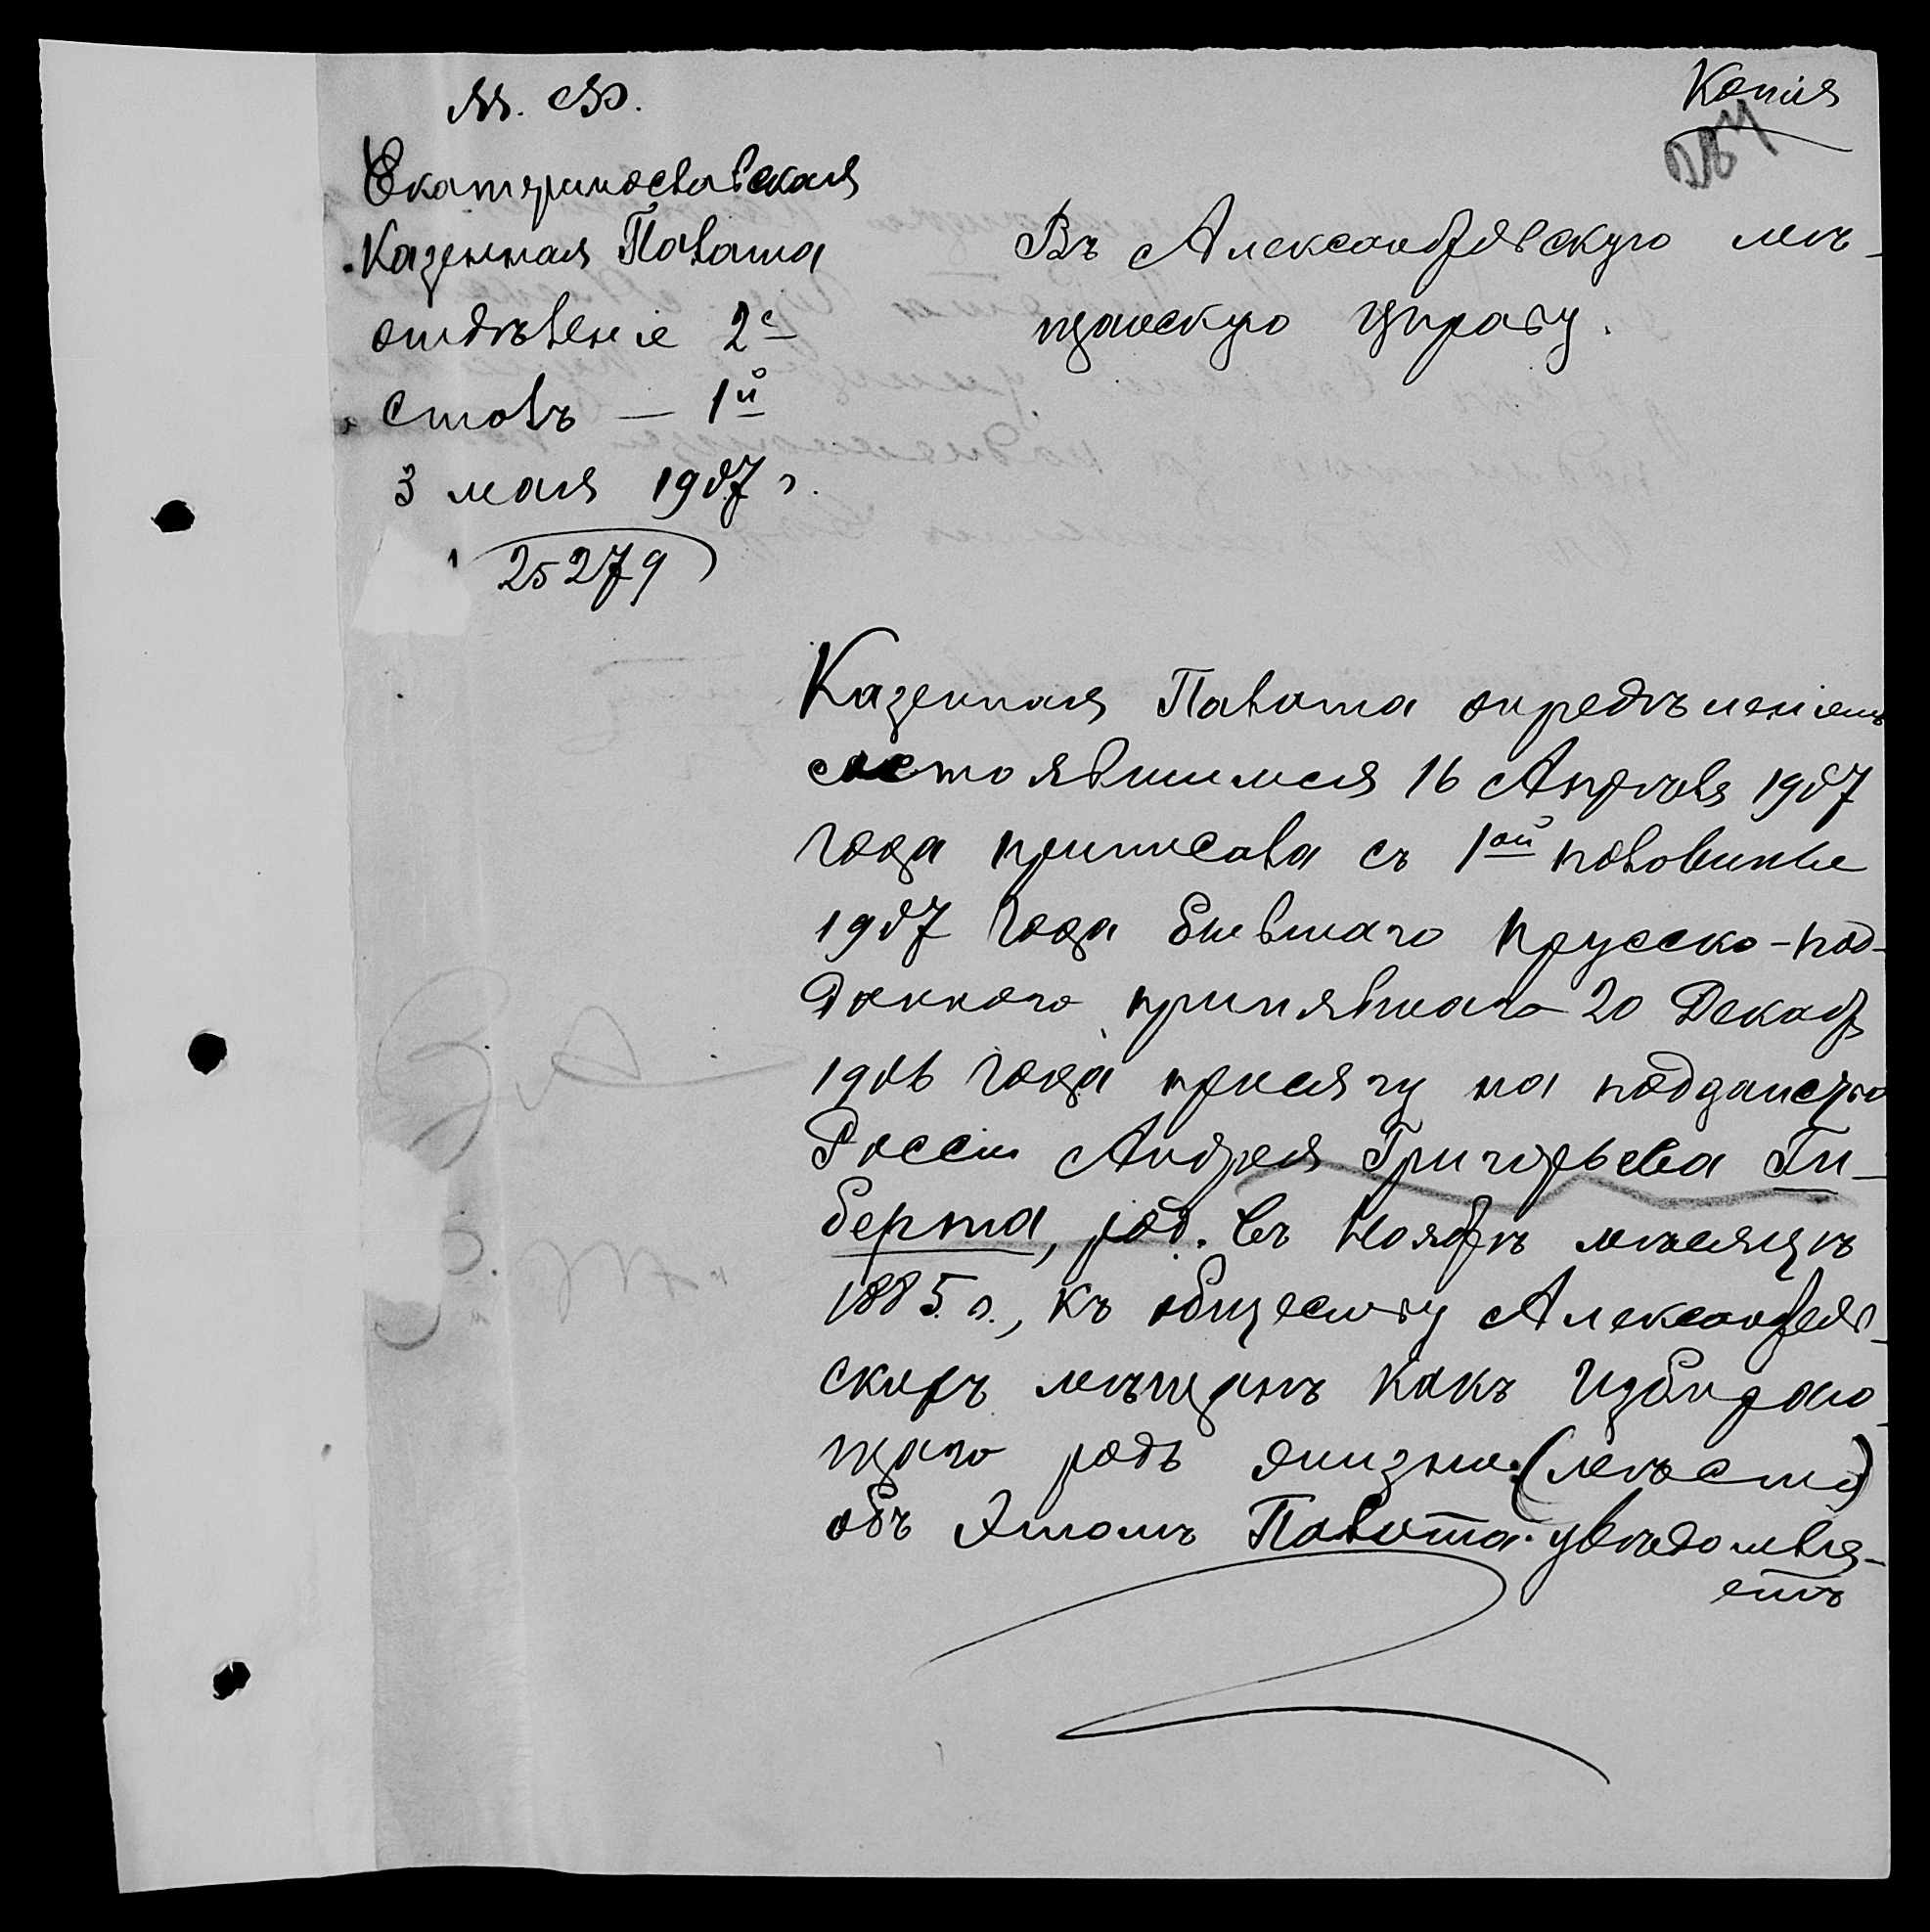 М. Ф.
Копія
Екатеринославская
Казенная Палата
отдѣленіе 2е
столъ — 1й
3 мая 1907 г.
25279
Въ Александровскую мѣ-
щанскую Управу.
Казенная Палата опредѣленіемъ
состоявшимся 16 Апрѣля 1907
года приписала съ 1ой половины
1907 года бывшаго прусско-под-
даннаго принявшаго 20 Декаб
1906 года присягу на подданство
Россіи Андрея Григорьева Ги-
берта, род. въ Ноябрѣ мѣсяцѣ
1885 г., къ обществу Александров-
скихъ мѣщанъ какъ избираю-
щаго родъ жизни (мѣсто)
объ этомъ Палата увѣдомля-
етъ